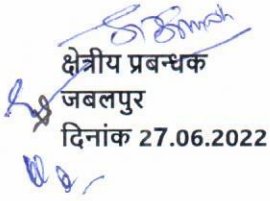 क्षेत्रीय प्रबन्धक
जबलपुर
दिनांक 27.06.2022